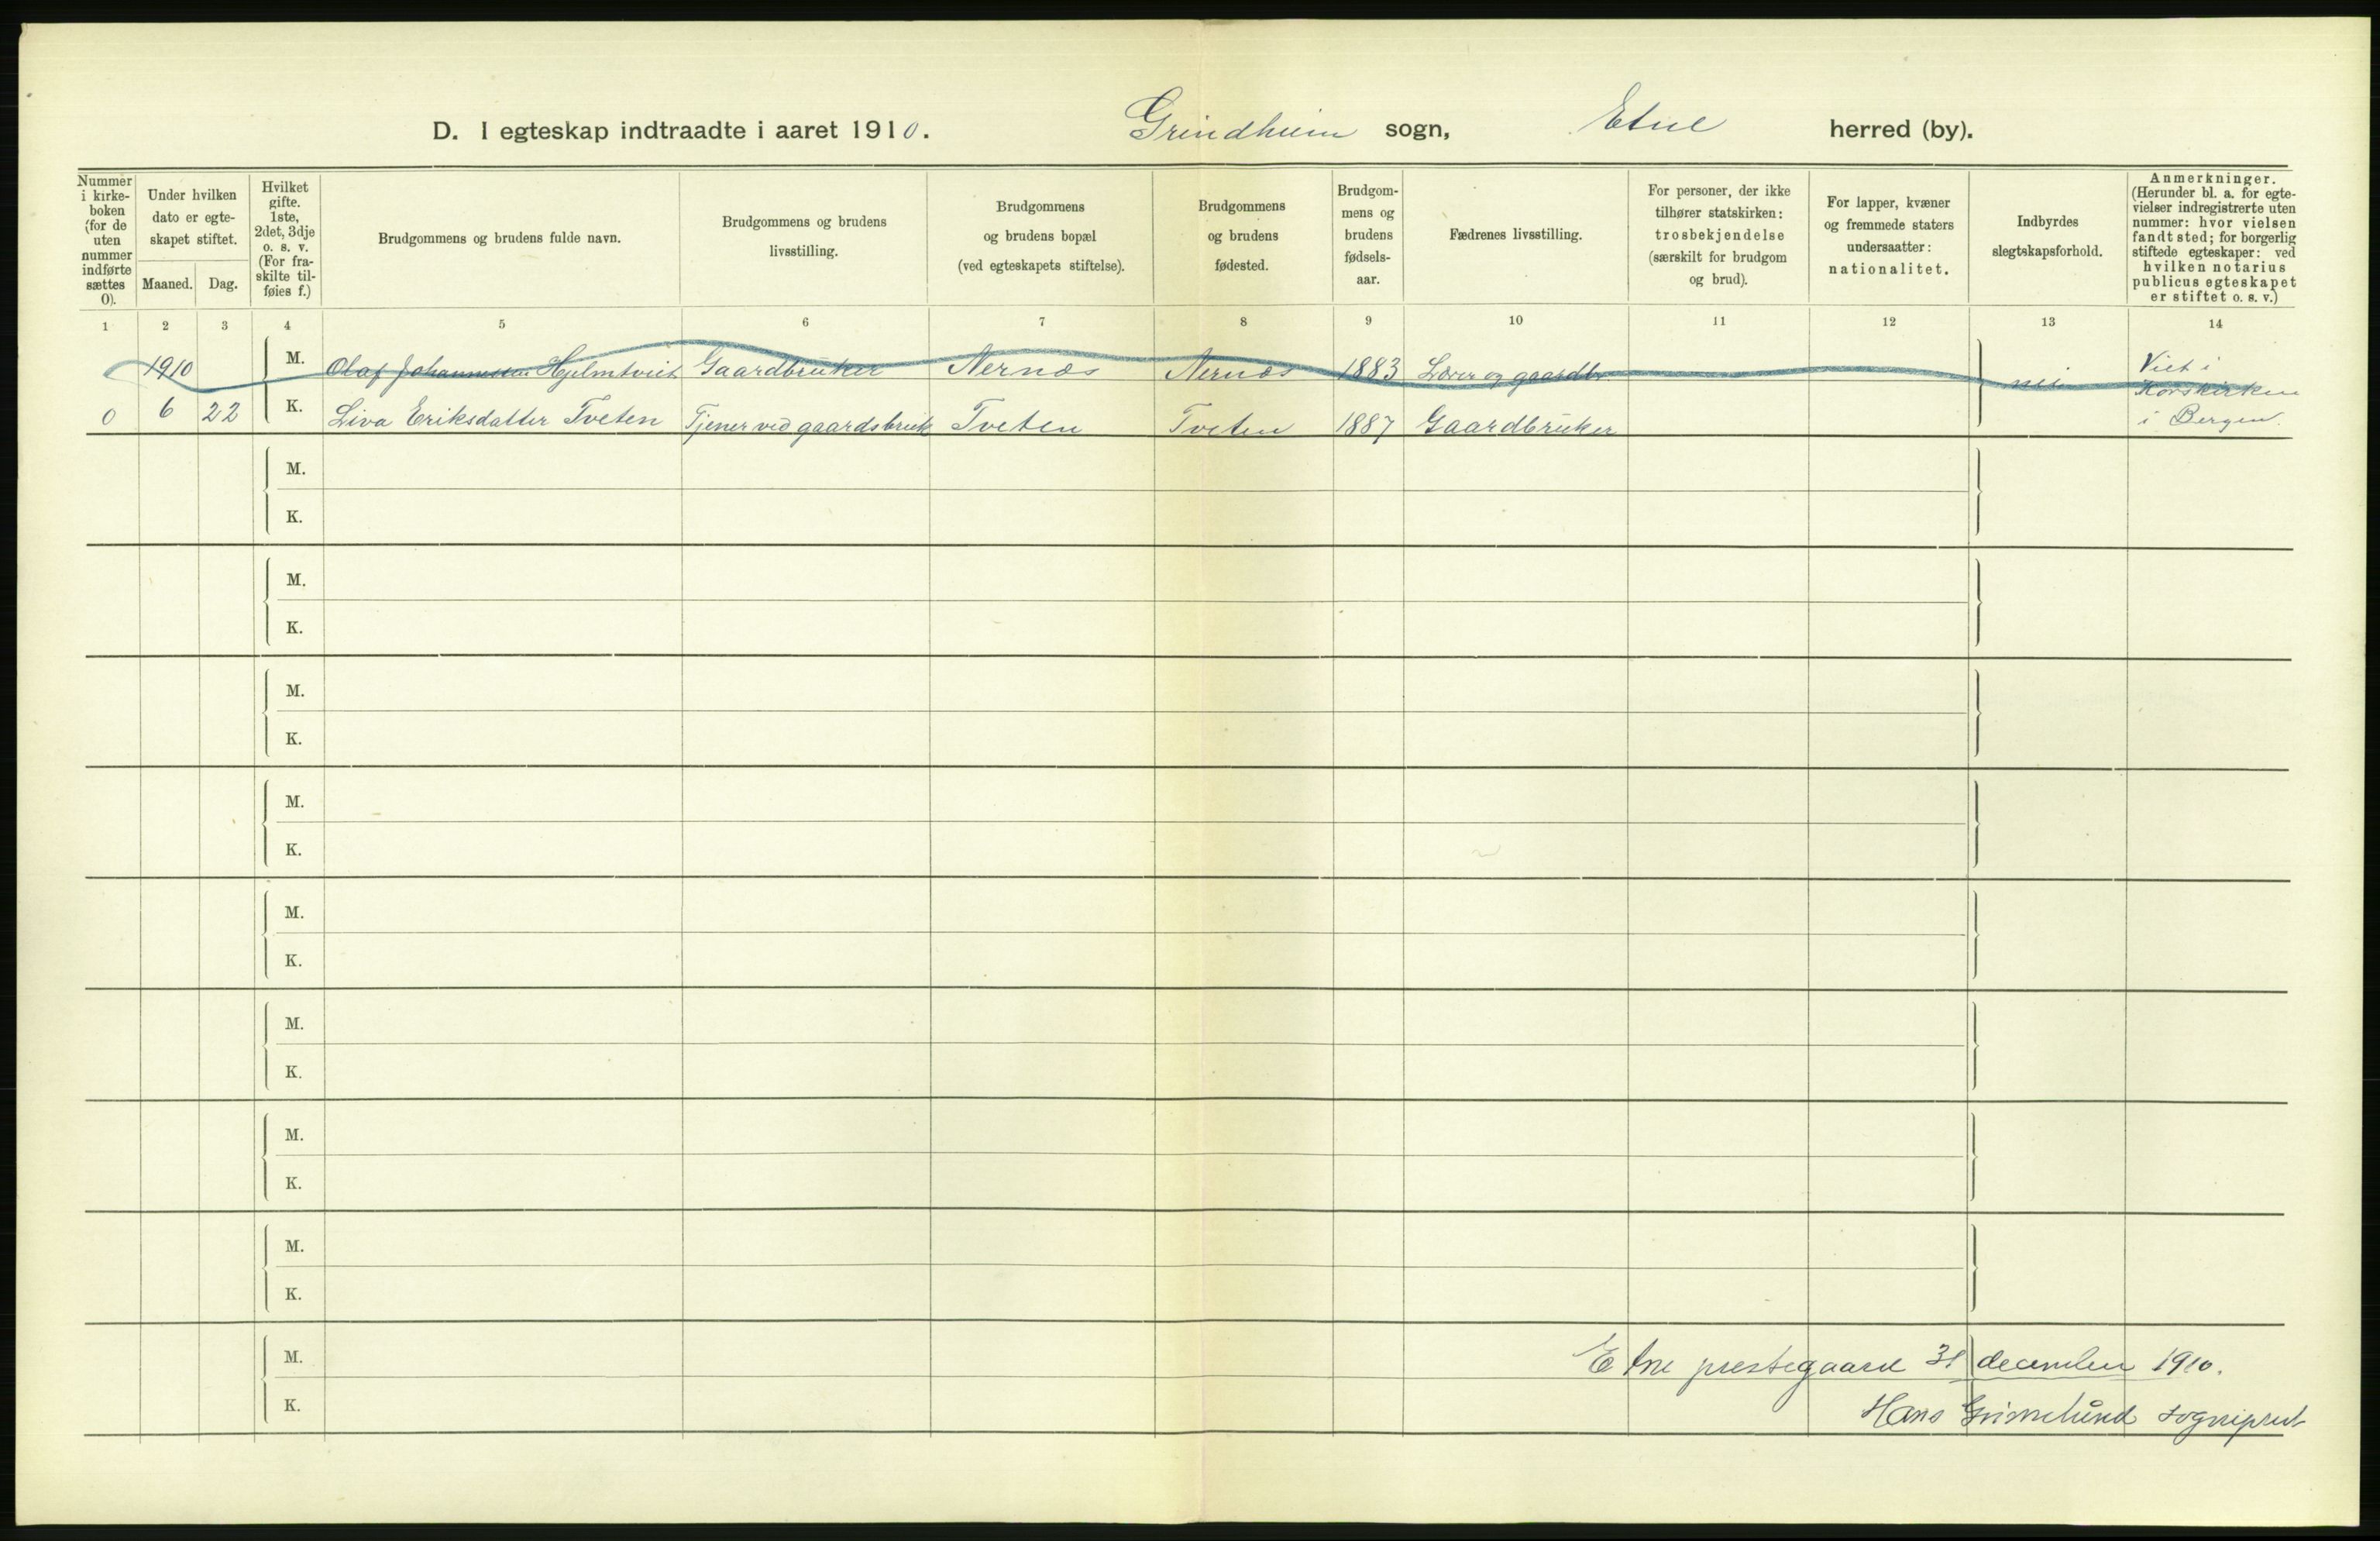 D. I egteskap indtraadte i aaret 1910. Grindheim sogn, Etne herred (by).
Nummer i kirke-boken (for de uten nummer indførte sættes 0).
Under hvilken dato er egte-skapet stiftet.
Maaned. Dag.
Hvilket gifte. 1ste, 2det, 3dje o. s. v. (For fra-skilte til-føies f.)
Brudgommens og brudens fulde navn.
Brudgommens og brudens livsstilling.
Brudgommens og brudens bopæl (ved egteskapets stiftelse).
Brudgommens og brudens fødested.
Brudgom-mens og brudens fødsels-aar.
Fædrenes livsstilling.
For personer, der ikke tilhører statskirken: trosbekjendelse (særskilt for brudgom og brud).
For lapper, kvæner og fremmede staters undersaatter: nationalitet.
Indbyrdes slegtskapsforhold.
Anmerkninger. (Herunder bl. a. for egte-vielser indregistrerte uten nummer: hvor vielsen fandt sted; for borgerlig stiftede egteskaper: ved hvilken notarius publicus egteskapet er stiftet o. s. v.)
1 2 3 4 5 6 7 8 9 10 11 12 13 14
1910 M. Olaf Johannessen Hjelmtveit Gaardbruker Nernæs Nernæs 1883 Lærer og gaardbr. nei Viet i Korskirken
0 6 22 K. Liva Eriksdatter Tveten Tjener ved gaardsbruk Tveten Tveten 1887 Gaardbruker i Bergen.
M.
K.
M.
K.
M.
K.
M.
K.
M.
K.
M.
K.
M.
K.
M.
K.
M. Etne prestegaard 31 december 1910.
K. Hans Grimelund sogneprest